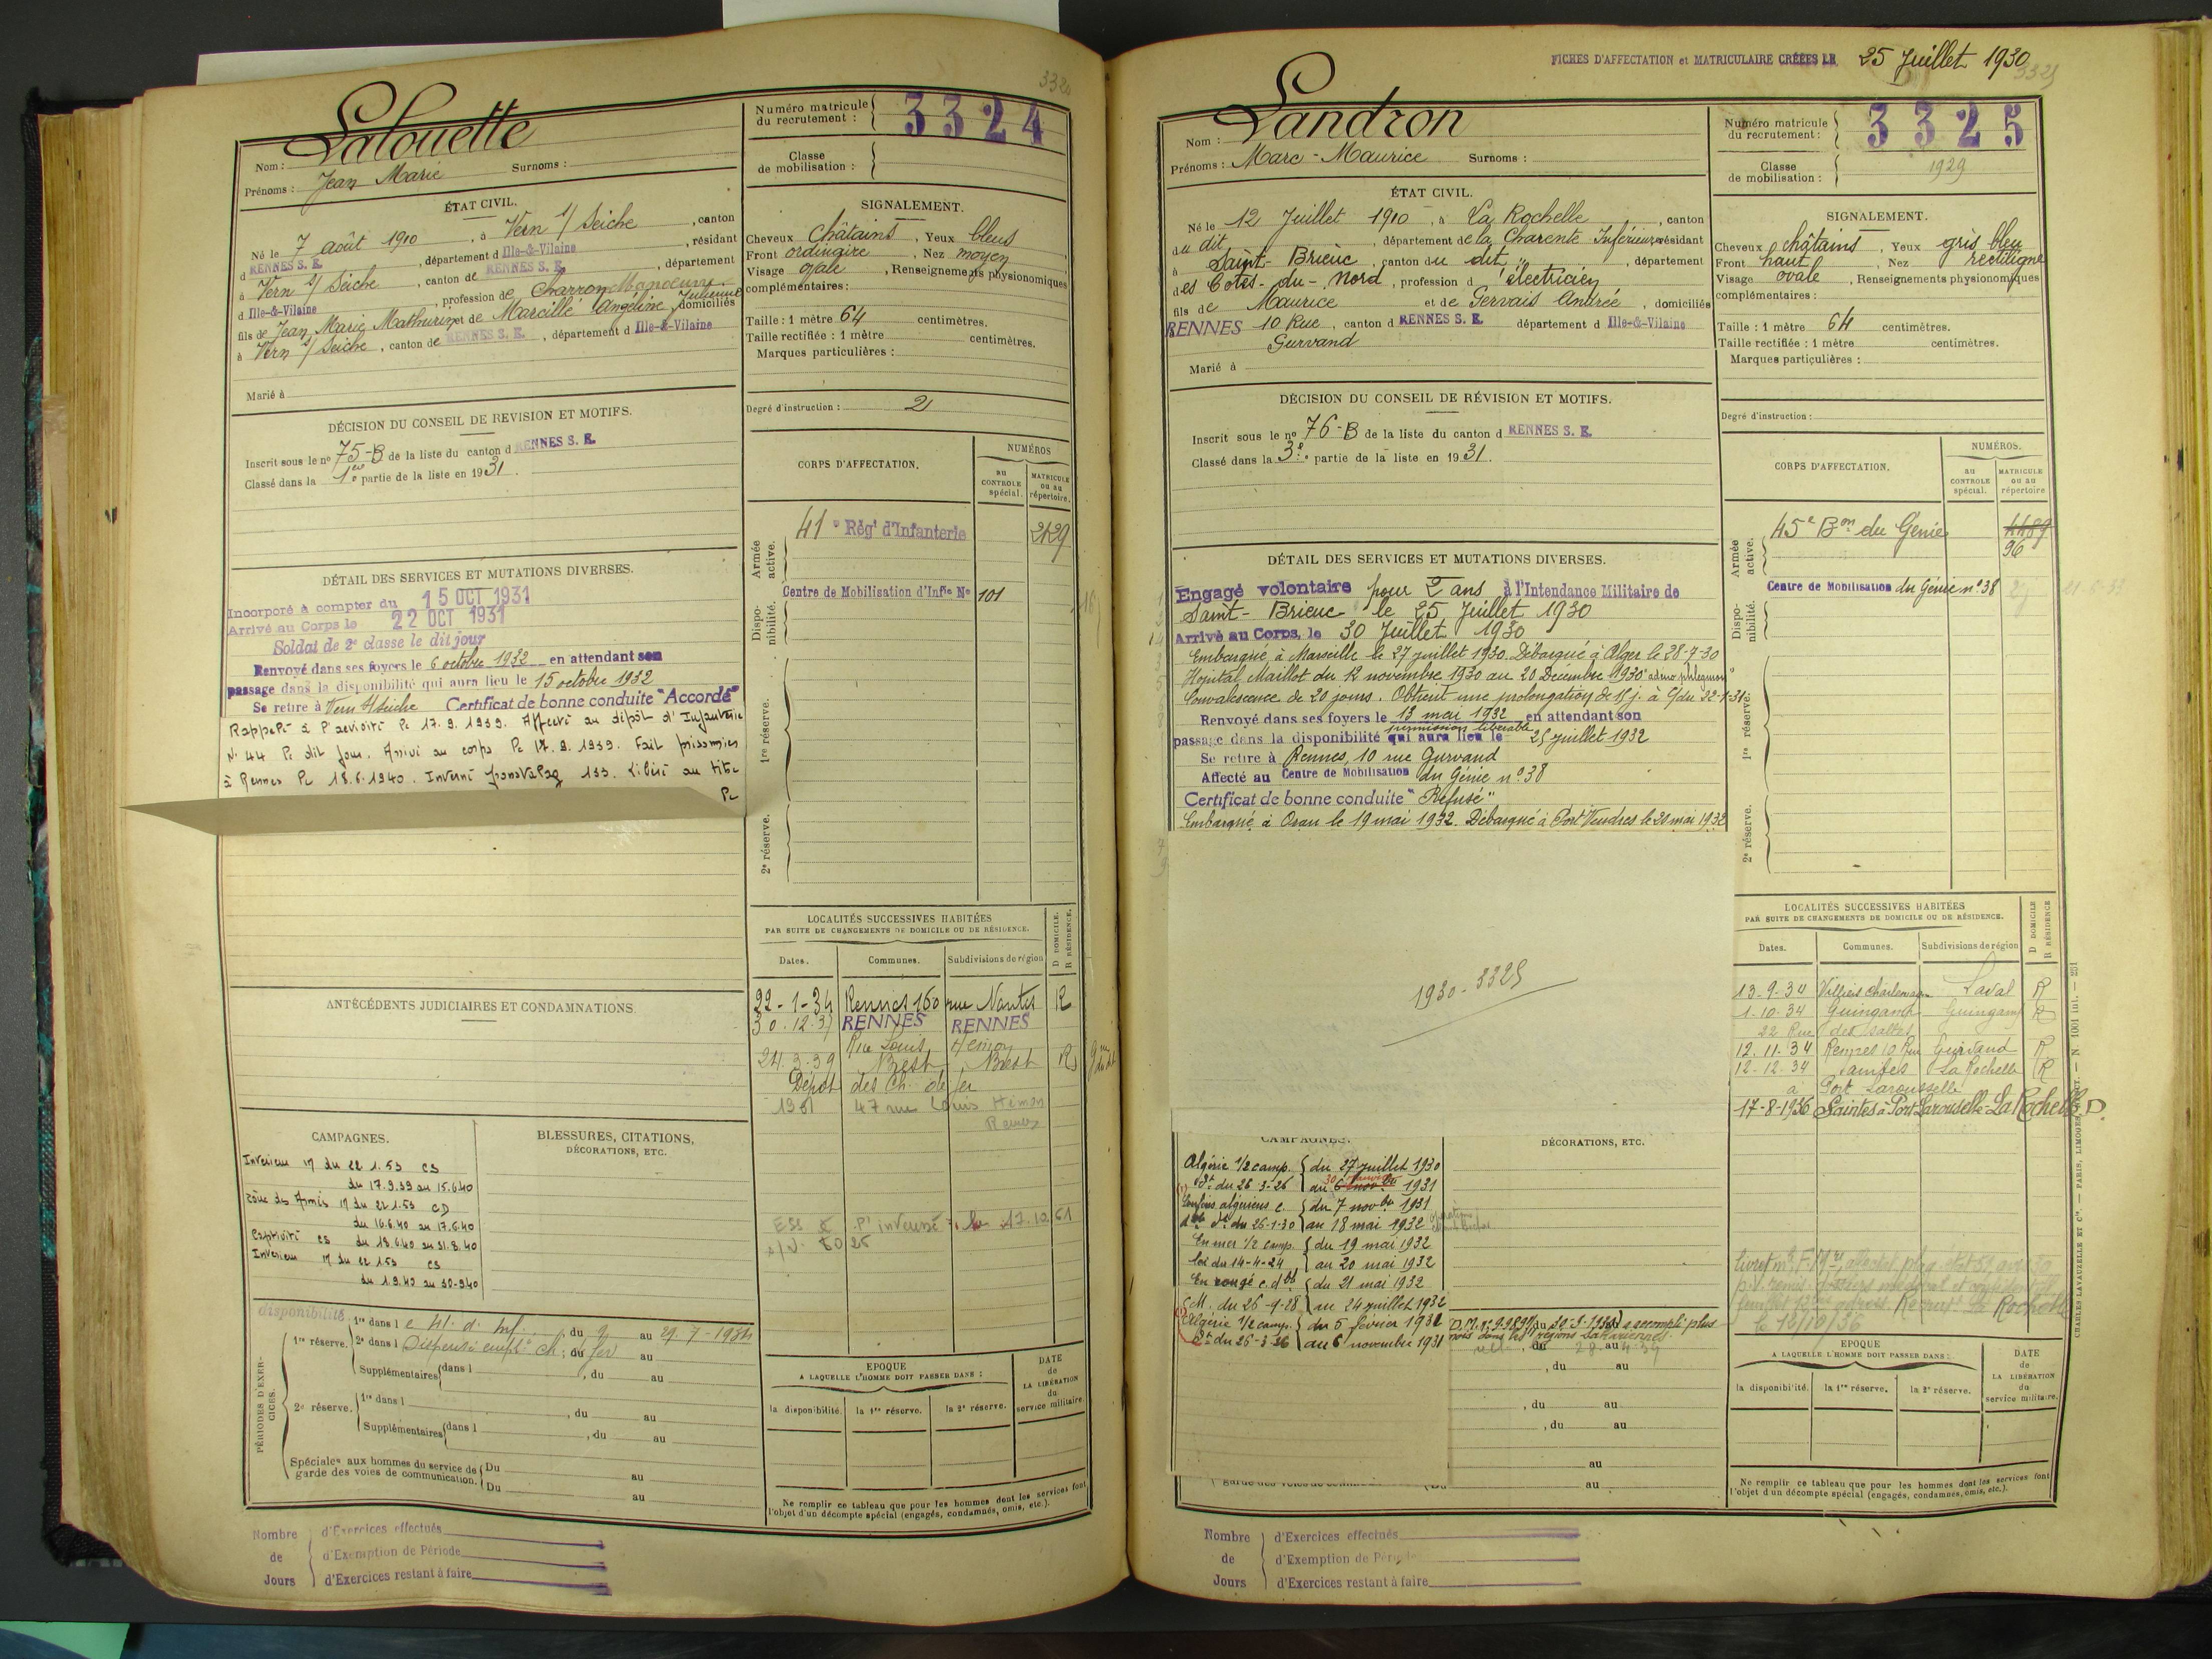 3324
Lalouette
Nom :
Prénoms : Jean Marie Surnoms :
Numéro matricule du recrutement : 3324
Classe de mobilisation :
ÉTAT CIVIL.
Né le 7 août 1910, à Vern s/ Seiche, canton
d RENNES S. E., département d Ille-&-Vilaine, résidant
à Vern s/ Seiche, canton de RENNES S. E., département
d Ille-&-Vilaine, profession de Charron Manoeuvre
fils de Jean Marie Mathurin et de Marcillé Angéline Julienne domiciliés
à Vern s/ Seiche, canton de RENNES S. E., département d Ille-&-Vilaine
Marié à
SIGNALEMENT.
Cheveux châtains, Yeux bleus
Front ordinaire, Nez moyen
Visage ovale, Renseignements physionomiques
complémentaires :
Taille : 1 mètre 64 centimètres.
Taille rectifiée : 1 mètre centimètres.
Marques particulières :
Degré d'instruction : 2
DÉCISION DU CONSEIL DE REVISION ET MOTIFS.
Inscrit sous le nº 75-B de la liste du canton d RENNES S. E.
Classé dans la 1re partie de la liste en 1931.
CORPS D'AFFECTATION.
NUMÉROS
au CONTROLE spécial.
MATRICULE ou au répertoire.
Armée active.
41e Régt d'Infanterie 2429
Dispo-nibilité.
Centre de Mobilisation d'Infie Nº 101
1re réserve.
2e réserve.
DÉTAIL DES SERVICES ET MUTATIONS DIVERSES.
Incorporé à compter du 15 OCT 1931
Arrivé au Corps le 22 OCT 1931
Soldat de 2e classe le dit jour
Renvoyé dans ses foyers le 6 octobre 1932 en attendant son
passage dans la disponibilité qui aura lieu le 15 octobre 1932
Se retire à Vern s/ Seiche Certificat de bonne conduite "Accordé"
Rappelé à l'activité le 17.9.1939. Affecté au dépôt d'Infanterie
Nº 44 le dit jour. Arrivé au corps le 17.9.1939. Fait prisonnier
à Rennes le 18.6.1940. Interné frontstalag 133. Libéré au titre
le
ANTÉCÉDENTS JUDICIAIRES ET CONDAMNATIONS.
LOCALITÉS SUCCESSIVES HABITÉES
PAR SUITE DE CHANGEMENTS DE DOMICILE OU DE RÉSIDENCE.
D DOMICILE.
R RÉSIDENCE.
Dates. Communes. Subdivisions de région
22-1-34 Rennes 160 rue Nantes R
30.12.37 RENNES RENNES
Rue Louis Hémon
24.3.39 Brest Brest R
Dépôt des Ch. de fer
1961 47 rue Louis Hémon
Rennes
CAMPAGNES.
Intérieur IM du 22.1.53 CS
du 17.9.39 au 15.6.40
Zône des Armées IM du 22.1.53 CD
du 16.6.40 au 17.6.40
Captivité CS du 18.6.40 au 31.8.40
Intérieur IM du 22.1.53 CS
du 1.9.40 au 30-9-40
BLESSURES, CITATIONS,
DÉCORATIONS, ETC.
PÉRIODES D'EXERCICES.
disponibilité
1re réserve. 1re dans l du 9 au 29-7-1934
2e dans l Dispensé emplé ch. du fer au
Supplémentaires dans l, du au
2e réserve. 1re dans l, du au
Supplémentaires dans l, du au
Spéciales aux hommes du service de garde des voies de communication. Du au
Du au
EPOQUE
A LAQUELLE L'HOMME DOIT PASSER DANS :
la disponibilité. la 1re réserve. la 2e réserve.
DATE de LA LIBÉRATION du service militaire.
Ne remplir ce tableau que pour les hommes dont les services font
l'objet d'un décompte spécial (engagés, condamnés, omis, etc.).
Nombre de Jours
d'Exercices effectués
d'Exemption de Période
d'Exercices restant à faire
FICHES D'AFFECTATION et MATRICULAIRE CRÉÉES LE 25 Juillet 1930
3325
Landron
Nom :
Prénoms : Marc-Maurice Surnoms :
Numéro matricule du recrutement : 3325
Classe de mobilisation : 1929
ÉTAT CIVIL.
Né le 12 Juillet 1910, à La Rochelle, canton
du dit, département de la Charente Inférieure, résidant
à Saint-Brieuc, canton du dit, département
des Côtes-du-Nord, profession d'électricien
fils de Maurice et de Gervais Andrée, domiciliés
RENNES 10 Rue, canton d RENNES S. E. département d Ille-&-Vilaine
Gurvand
Marié à
SIGNALEMENT.
Cheveux châtains, Yeux gris bleu
Front haut, Nez rectiligne
Visage ovale, Renseignements physionomiques
complémentaires :
Taille : 1 mètre 64 centimètres.
Taille rectifiée : 1 mètre centimètres.
Marques particulières :
Degré d'instruction :
DÉCISION DU CONSEIL DE RÉVISION ET MOTIFS.
Inscrit sous le nº 76-B de la liste du canton d RENNES S. E.
Classé dans la 3e partie de la liste en 1931.
CORPS D'AFFECTATION.
NUMÉROS.
au CONTROLE spécial.
MATRICULE ou au répertoire
Armée active.
45e Bon du Génie 4489
96
Dispo-nibilité.
Centre de Mobilisation du Génie nº 38
1re réserve.
2e réserve.
DÉTAIL DES SERVICES ET MUTATIONS DIVERSES.
Engagé volontaire pour 2 ans à l'Intendance Militaire de
Saint-Brieuc le 25 Juillet 1930
Arrivé au Corps, le 30 Juillet 1930
Embarqué à Marseille le 27 juillet 1930. Débarqué à Alger le 28-7-30
Hôpital Maillot du 12 novembre 1930 au 20 Décembre 1930 "adéno phlegmon"
Convalescence de 20 jours. Obtient une prolongation de 15 j. à c/ du 22-1-31
Renvoyé dans ses foyers le 13 mai 1932 en attendant son
permission libérable
passage dans la disponibilité qui aura lieu le 25 juillet 1932
Se retire à Rennes, 10 rue Gurvand
Affecté au Centre de Mobilisation du Génie nº 38
Certificat de bonne conduite "Refusé"
Embarqué à Oran le 19 mai 1932. Débarqué à Port Vendres le 20 mai 1932
1930-3325
LOCALITÉS SUCCESSIVES HABITÉES
PAR SUITE DE CHANGEMENTS DE DOMICILE OU DE RÉSIDENCE.
D DOMICILE
R RÉSIDENCE
Dates. Communes. Subdivisions de région
13-9-34 Villiers Charlemagne Laval R
1-10-34 Guingamp Guingamp R
22 Rue des Salles
12.11.34 Rennes 10 Rue Gurvand R
12-12-34 Saintes La Rochelle R
à Port Larousselle
17-8-1936 Saintes à Port Larouselle La Rochelle D.
CAMPAGNES.
Algérie 1/2 camp. du 27 juillet 1930
Dt du 26-3-26 au 1931
Confins algériens c. du 7 novbre 1931
dble Dt du 26-1-30 au 18 mai 1932
En mer 1/2 camp. du 19 mai 1932
Loi du 14-4-24, au 20 mai 1932
En congé c. dble du 21 mai 1932
C.M. du 26-9-28 au 24 juillet 1932
Algérie 1/2 camp. du 5 février 1931
Dt du 26-3-26 au 6 novembre 1931
DÉCORATIONS, ETC.
a accompli plus
mois dans les régions sahariennes.
, du au
, du au
, du au
au
au
le 12/10/36
EPOQUE
A LAQUELLE L'HOMME DOIT PASSER DANS :
la disponibilité. la 1re réserve. la 2e réserve.
DATE de LA LIBÉRATION du service militaire.
Ne remplir ce tableau que pour les hommes dont les services font
l'objet d'un décompte spécial (engagés, condamnés, omis, etc.).
CHARLES LAVAUZELLE ET Cie. — PARIS, LIMOGES, NANCY. — N. 1001 int. — 251
Nombre de Jours
d'Exercices effectués
d'Exemption de Période
d'Exercices restant à faire